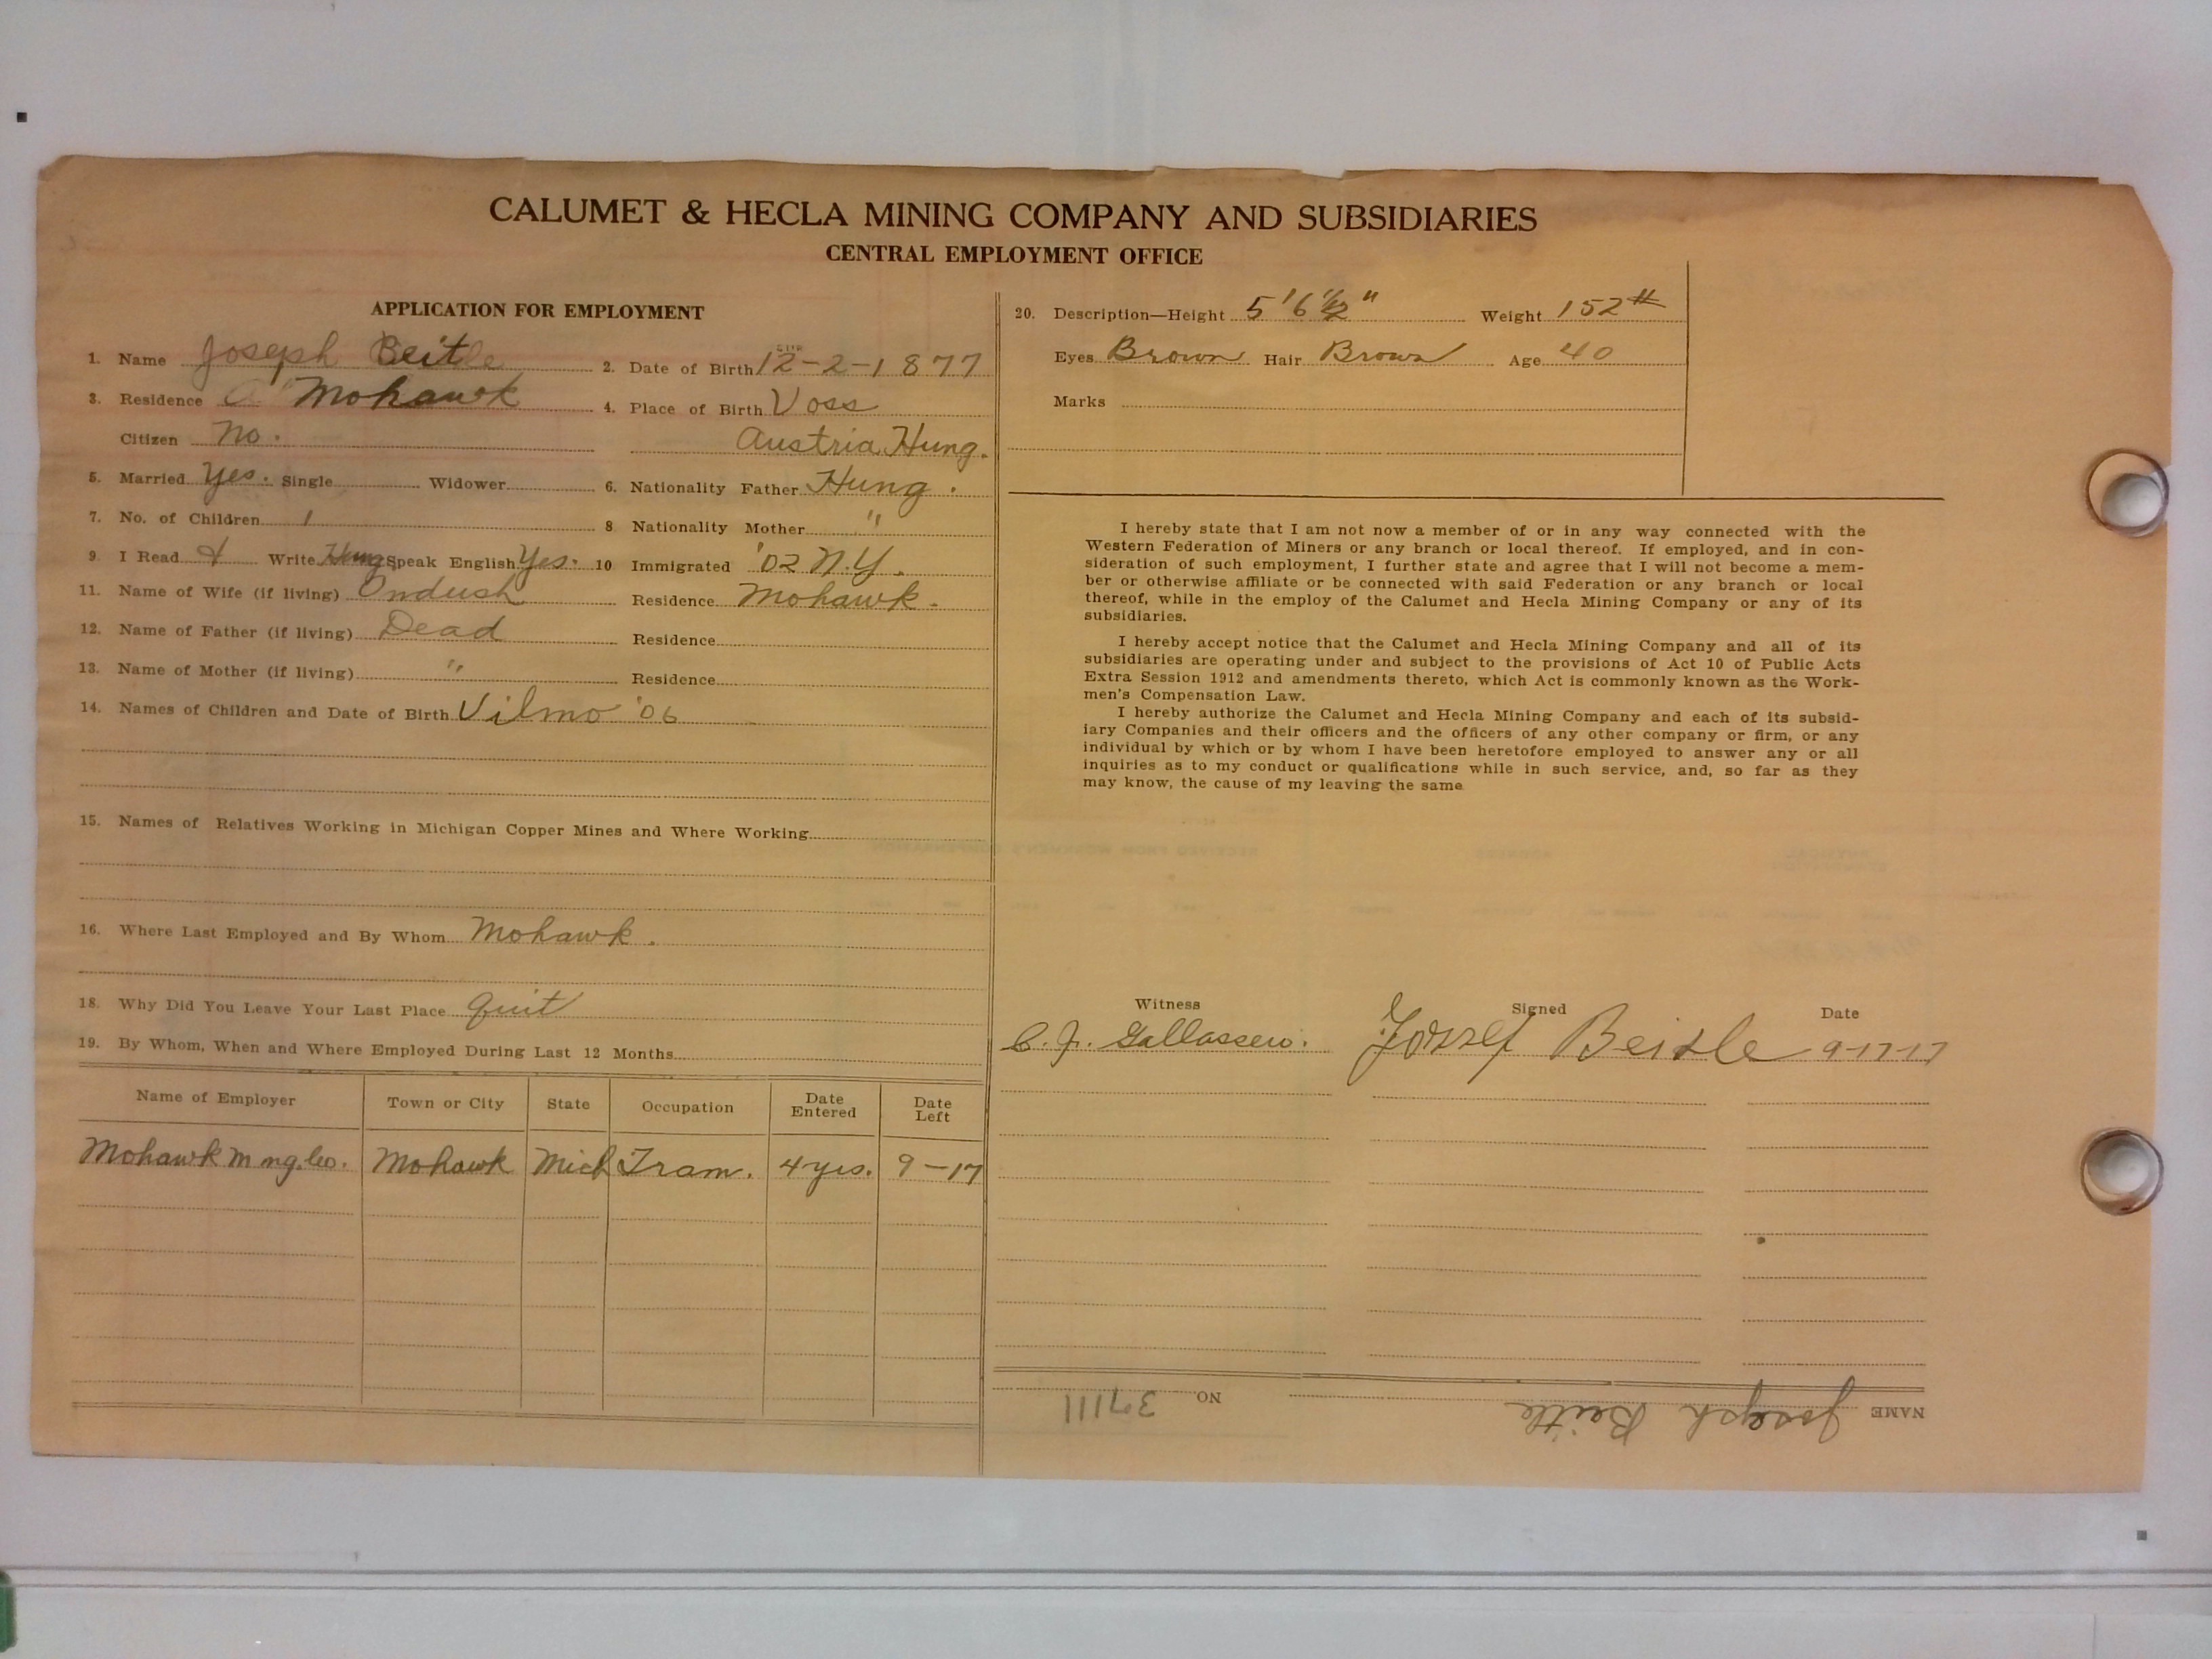 CALUMET & HECLA MINING COMPANY AND SUBSIDIARIES
CENTRAL EMPLOYMENT OFFICE
APPLICATION FOR EMPLOYMENT
1. Name Joseph Beitle 2. Date of Birth 12-2-1877
3. Residence Mohawk 4. Place of Birth Voss
Citizen No. Austria Hung.
5. Married Yes. Single Widower 6. Nationality Father Hung.
7. No. of Children 1 8 Nationality Mother "
9. I Read & Write Hung Speak English Yes. 10 Immigrated '02 N.Y.
11. Name of Wife (if living) Ondush Residence Mohawk.
12. Name of Father (if living) Dead Residence
13. Name of Mother (if living) " Residence
14. Names of Children and Date of Birth Vilmo '06
15. Names of Relatives Working in Michigan Copper Mines and Where Working
16. Where Last Employed and By Whom Mohawk.
18. Why Did You Leave Your Last Place quit
19. By Whom, When and Where Employed During Last 12 Months
Name of Employer Town or City State Occupation Date Entered Date Left
Mohawk Mng. Co. Mohawk Mich Tram. 4 yrs. 9-17
20. Description—Height 5' 6 1/2" Weight 152 #
Eyes Brown Hair Brown Age 40
Marks
I hereby state that I am not now a member of or in any way connected with the
Western Federation of Miners or any branch or local thereof. If employed, and in con-
sideration of such employment, I further state and agree that I will not become a mem-
ber or otherwise affiliate or be connected with said Federation or any branch or local
thereof, while in the employ of the Calumet and Hecla Mining Company or any of its
subsidiaries.
I hereby accept notice that the Calumet and Hecla Mining Company and all of its
subsidiaries are operating under and subject to the provisions of Act 10 of Public Acts
Extra Session 1912 and amendments thereto, which Act is commonly known as the Work-
men's Compensation Law.
I hereby authorize the Calumet and Hecla Mining Company and each of its subsid-
iary Companies and their officers and the officers of any other company or firm, or any
individual by which or by whom I have been heretofore employed to answer any or all
inquiries as to my conduct or qualifications while in such service, and, so far as they
may know, the cause of my leaving the same
Witness Signed Date
C. J. Gallassen. Jozsef Beitle 9-17-17
NAME Joseph Beitle NO 37111